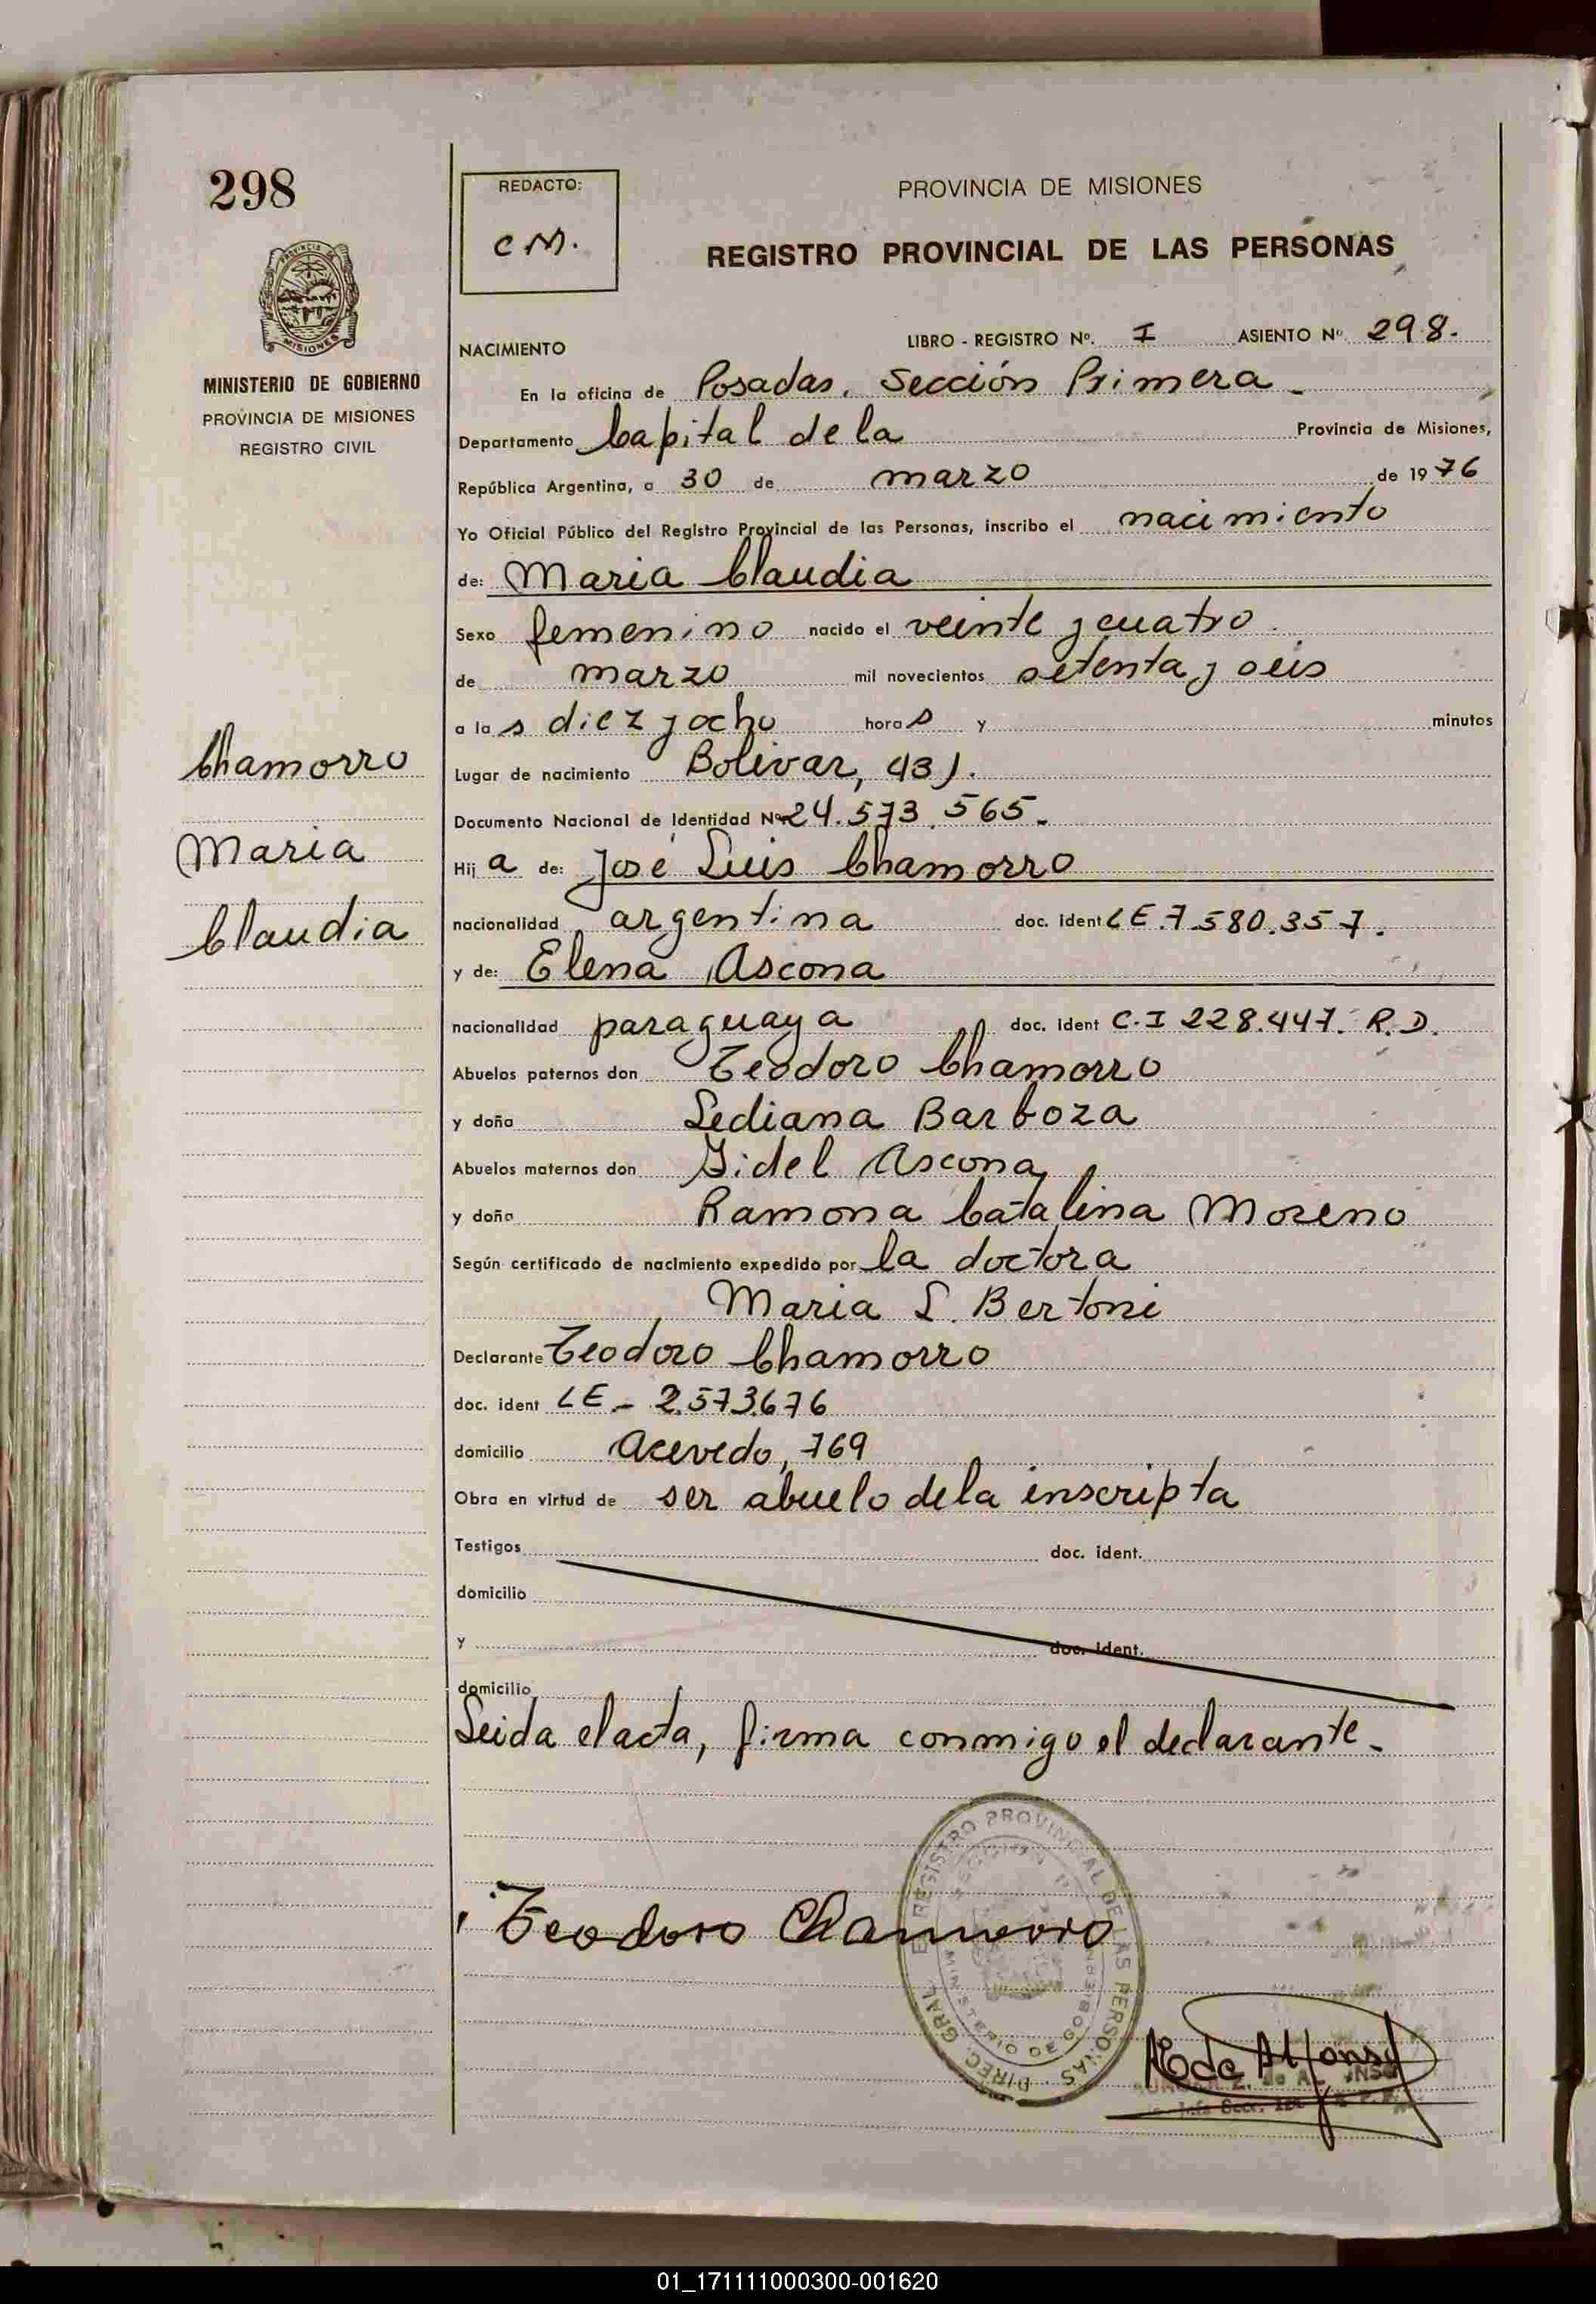 298
REDACTO:
C M.
PROVINCIA DE MISIONES
REGISTRO PROVINCIAL DE LAS PERSONAS
MISIONES
MINISTERIO DE GOBIERNO
PROVINCIA DE MISIONES
REGISTRO CIVIL
NACIMIENTO LIBRO - REGISTRO Nº. I ASIENTO Nº 298.
En la oficina de Posadas, Sección Primera
Departamento Capital de la Provincia de Misiones,
República Argentina, a 30 de marzo de 1976
Yo Oficial Público del Registro Provincial de las Personas, inscribo el nacimiento
de: Maria Claudia
Sexo femenino nacido el veinte y cuatro
de marzo mil novecientos setenta y seis
a la s diez y ocho hora s y minutos
Chamorro
Lugar de nacimiento Bolivar, 431.
Documento Nacional de Identidad Nº 24.573.565.
Maria
Hij a de: José Luis Chamorro
Claudia
nacionalidad argentina doc. ident LE.7.580.357.
y de: Elena Ascona
nacionalidad paraguaya doc. ident C.I 228.447. R.D.
Abuelos paternos don Teodoro Chamorro
y doña Lediana Barboza
Abuelos maternos don Fidel Ascona
y doña Ramona Catalina Moreno
Según certificado de nacimiento expedido por la doctora
Maria L. Bertoni
Declarante Teodoro Chamorro
doc. ident LE - 2.573.676
domicilio Acevedo, 769
Obra en virtud de ser abuelo de la inscripta
Testigos doc. ident.
domicilio
y doc. ident.
domicilio
Leida el acta, firma conmigo el declarante.
DIREC. GRAL. REGISTRO PROVINCIAL DE LAS PERSONAS
MINISTERIO DE GOBIERNO
Teodoro Chamorro
de Alfonso
01_171111000300-001620